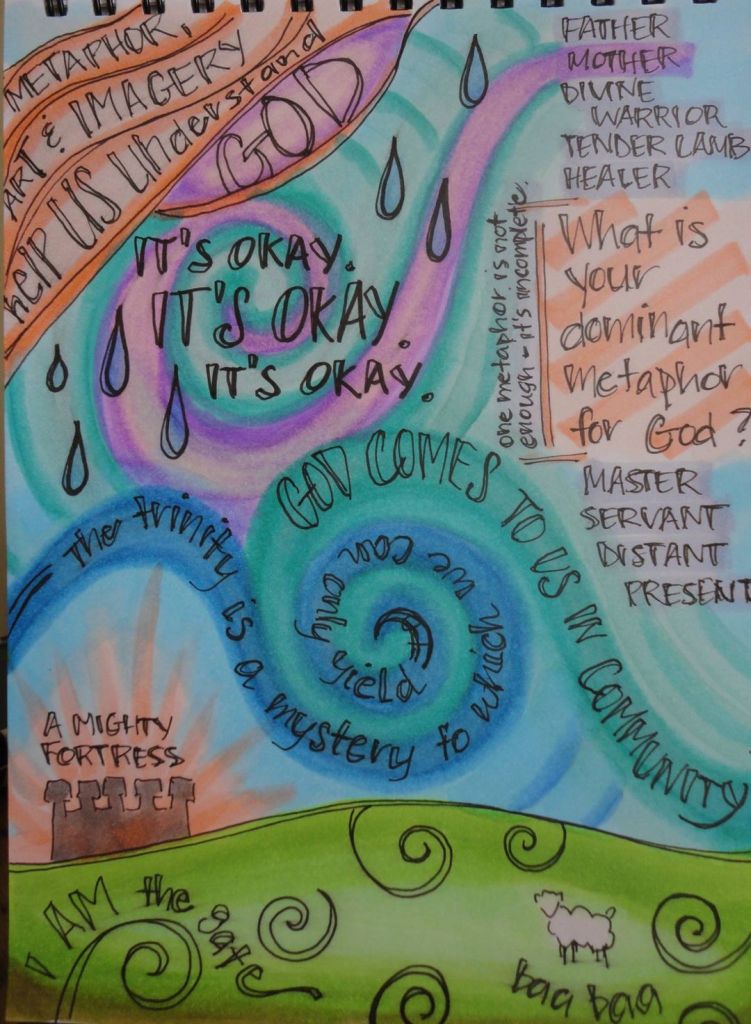 METAPHOR,
ART & IMAGERY
help us understand
GOD
FATHER
MOTHER
DIVINE
WARRIOR
TENDER LAMB
HEALER
one metaphor is not
enough - it's incomplete.
What is
your
dominant
metaphor
for God?
MASTER
SERVANT
DISTANT
PRESENT
IT'S OKAY.
IT'S OKAY.
IT'S OKAY.
GOD COMES TO US IN COMMUNITY
The trinity is a mystery to which we can only yield
A MIGHTY
FORTRESS
I AM the gate
baa baa